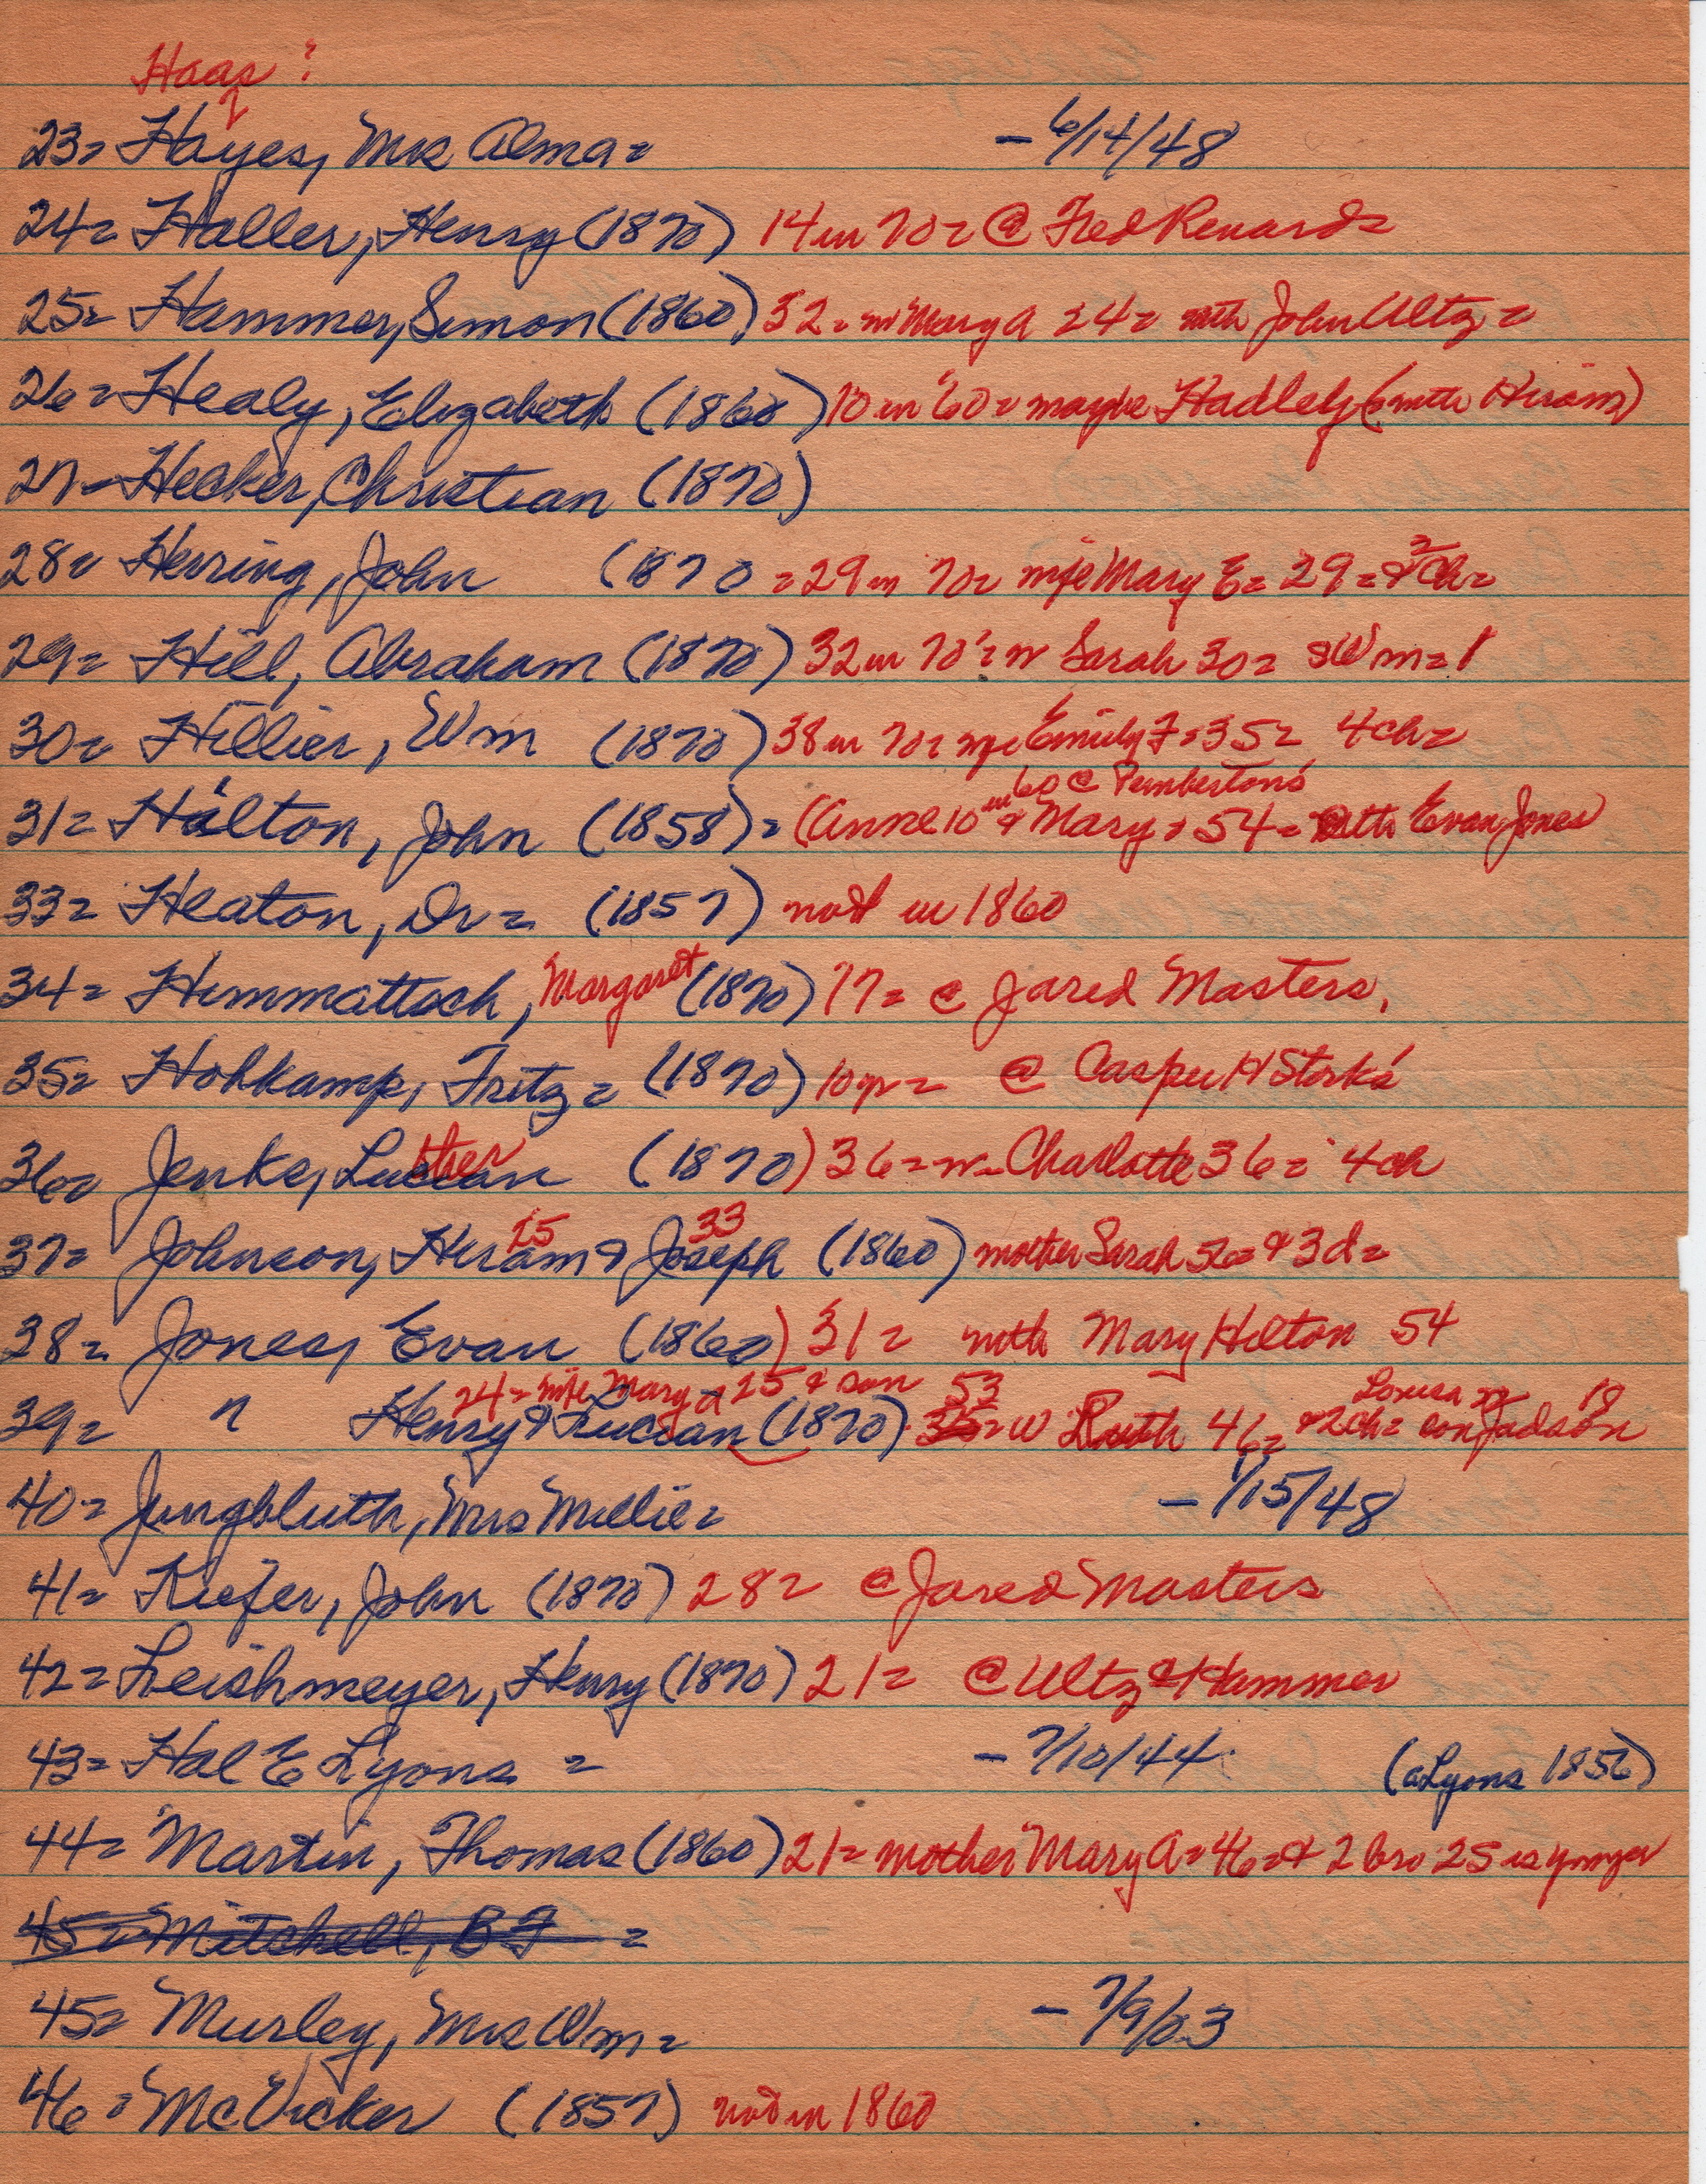 Haas ?
?
23= Hayes, Mrs Alma = - 6/14/48
24= Haller, Henry (1870) 14 in 70= @ Fred Renards
25= Hammer, Simon (1860) 32= w Mary A 24= with John Ultz =
26= Healy, Elizabeth (1860) 10 in '60= maybe Hadley (with Hiram)
27= Hecker, Christian (1870)
28= Herring, John (1870 = 29 in 70= wife Mary E= 29= & 2 Ch=
29= Hill, Abraham (1870) 32 in 70= w Sarah 30= & Wm= 1
30= Hillier, Wm (1870) 38 in 70= wife Emily F= 35= 4ch=
in 60 @ Pemberton's
31= Hilton, John (1858)= (Anne 10 & Mary = 54= with Evan Jones
33= Heaton, Dr= (1857) not in 1860
34= Himmattsch, Margaret (1870) 17= @ Jared Masters.
35= Hohkamp, Fritz= (1870) 10yr= @ Casper H Stork's
ther
36= Jenks, Lucian (1870) 36= w- Charlotte 36= 4ch
25 33
37= Johnson, Hiram & Joseph (1860) mother Sarah 56= & 3d=
38= Jones, Evan (1860) 31= with Mary Hilton 54
24= wife Mary A 25 & son 53 Louisa 18
39= " Henry & Lucian (1870) = w Ruth 46= & 2ch= son Judson
40= Jungbluth, Mrs Millie= - 1/15/48
41= Kiefer, John (1870) 28= @ Jared Masters
42= Leishmeyer, Henry (1870) 21= @ Ultz & Hammer
43= Hal E Lyons = - 7/10/44 (a Lyons 1856)
44= Martin, Thomas (1860) 21= mother Mary A= 46= & 2 bro 25 is
45= Mitchell, B F =
45= Murley, Mrs Wm= - 7/9/63
46= McVicker (1857) not in 1860